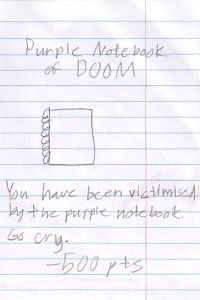 Purple Notebook
of DOOM
You have been victimised
by the purple notebook.
Go cry.
-500 pts